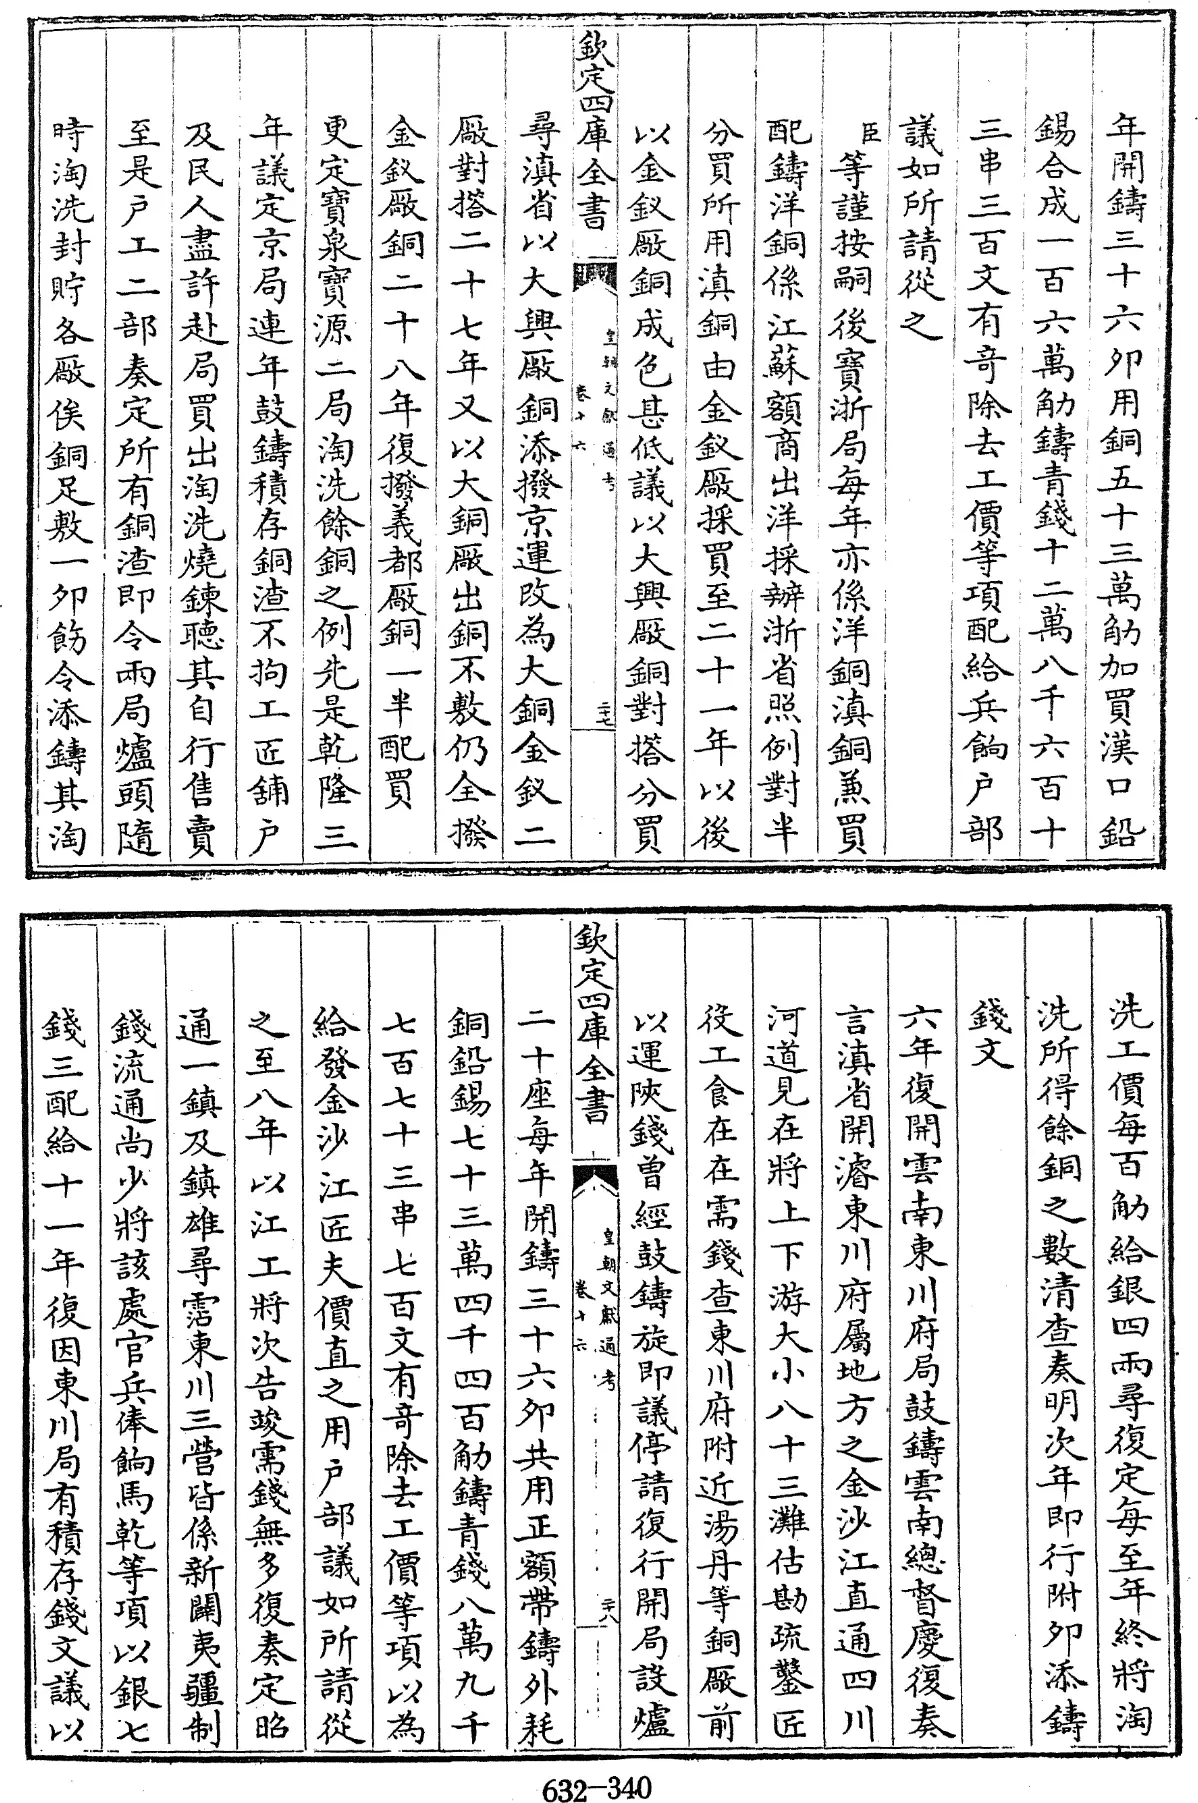 年開鑄三十六卯用銅五十三萬觔加買漢口鉛
錫合成一百六萬觔鑄青錢十二萬八千六百十
三串三百文有奇除去工價等項配給兵餉户部
議如所請從之
臣等謹按嗣後寳浙局每年亦係洋銅滇銅兼買
配鑄洋銅係江蘇額商出洋採辦浙省照例對半
分買所用滇銅由金釵厰採買至二十一年以後
以金釵厰銅成色甚低議以大興厰銅對搭分買
欽定四庫全書
皇朝文獻通考
卷十六
二十七
尋滇省以大興厰銅添撥京運改為大銅金釵二
厰對搭二十七年又以大銅厰出銅不敷仍全撥
金釵厰銅二十八年復撥義都厰銅一半配買
更定寳泉寳源二局淘洗餘銅之例先是乾隆三
年議定京局連年鼓鑄積存銅渣不拘工匠舖户
及民人盡許赴局買出淘洗燒鍊聽其自行售賣
至是户工二部奏定所有銅渣即令兩局爐頭隨
時淘洗封貯各厰俟銅足敷一卯飭令添鑄其淘
洗工價每百觔給銀四兩尋復定每至年終將淘
洗所得餘銅之數清查奏明次年即行附卯添鑄
錢文
六年復開雲南東川府局鼓鑄雲南總督慶復奏
言滇省開濬東川府屬地方之金沙江直通四川
河道見在將上下游大小八十三灘估勘疏鑿匠
役工食在在需錢查東川府附近湯丹等銅厰前
以運陜錢曾經鼓鑄旋即議停請復行開局設爐
欽定四庫全書
皇朝文獻通考
卷十六
二十八
二十座每年開鑄三十六卯共用正額帶鑄外耗
銅鉛錫七十三萬四千四百觔鑄青錢八萬九千
七百七十三串七百文有奇除去工價等項以為
給發金沙江匠夫價直之用户部議如所請從
之至八年以江工將次告竣需錢無多復奏定昭
通一鎮及鎮雄尋霑東川三營皆係新闢夷疆制
錢流通尚少將該處官兵俸餉馬乾等項以銀七
錢三配給十一年復因東川局有積存錢文議以
632-340